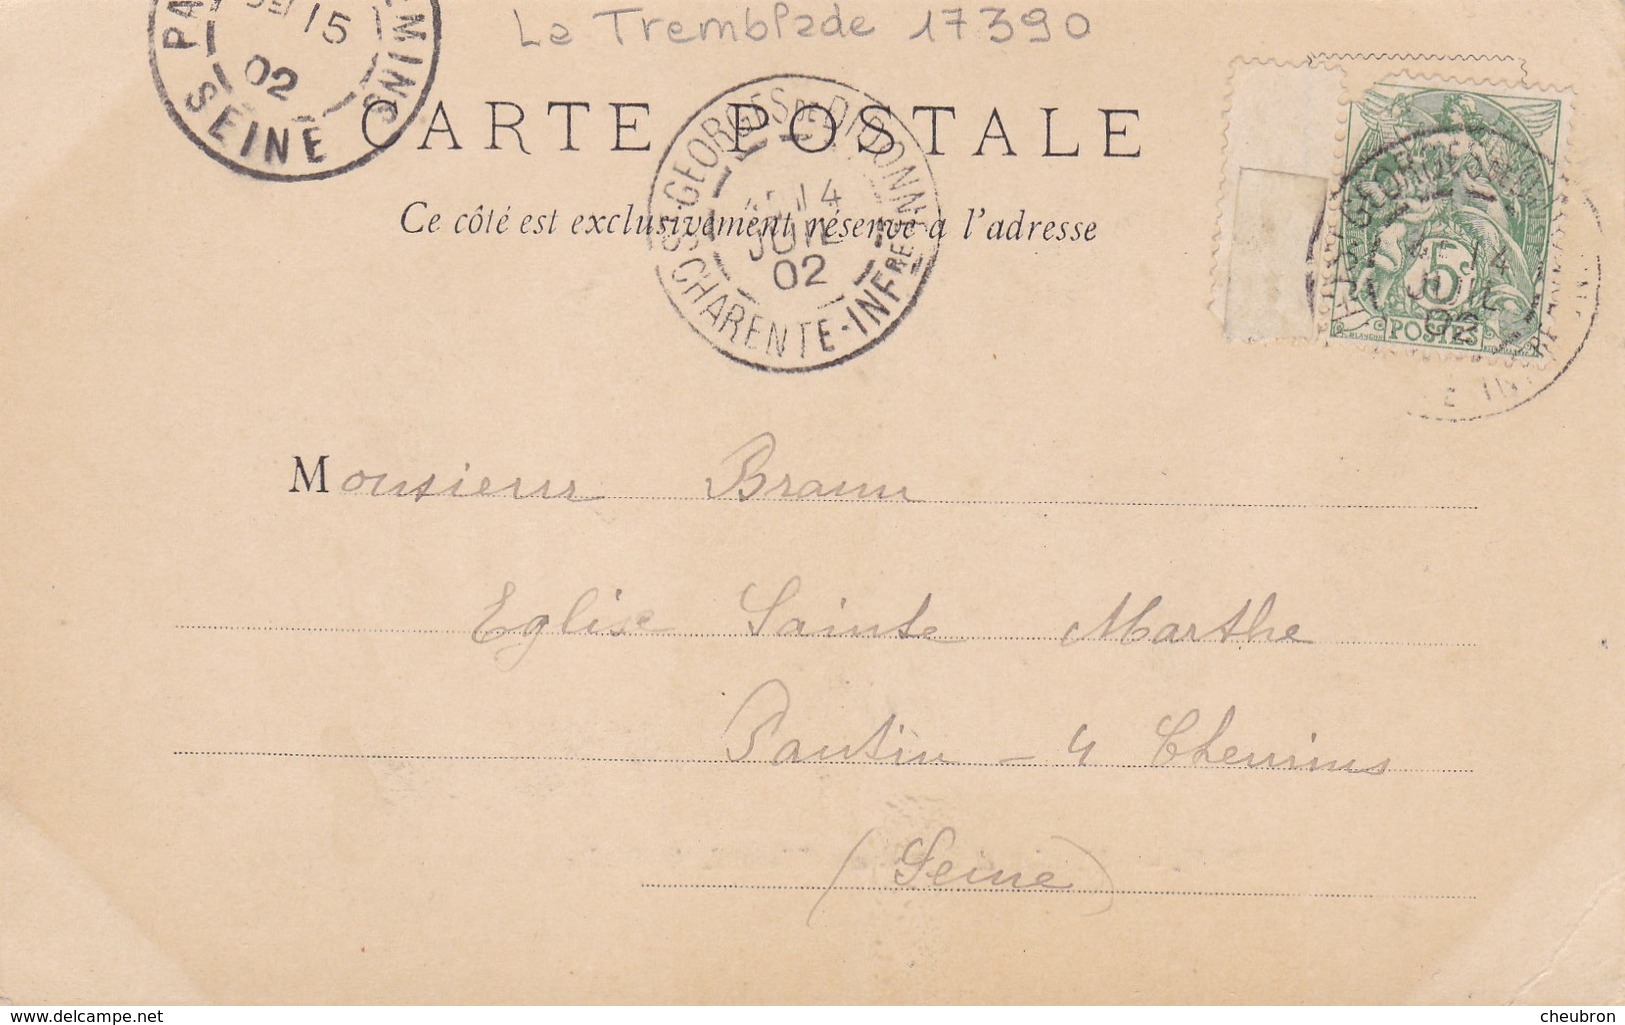 La Tremblade 17390
SEINE
15
02
CARTE POSTALE
Ce côté est exclusivement réservé à l'adresse
ST-GEORGES DE DIDONNE
14
JUIL
02
CHARENTE-INFRE
14
JUIL
02
5c
POSTES
Monsieur Braun
Eglise Sainte Marthe
Pantin - 4 Chemins
(Seine)
delcampe.net
cheubron